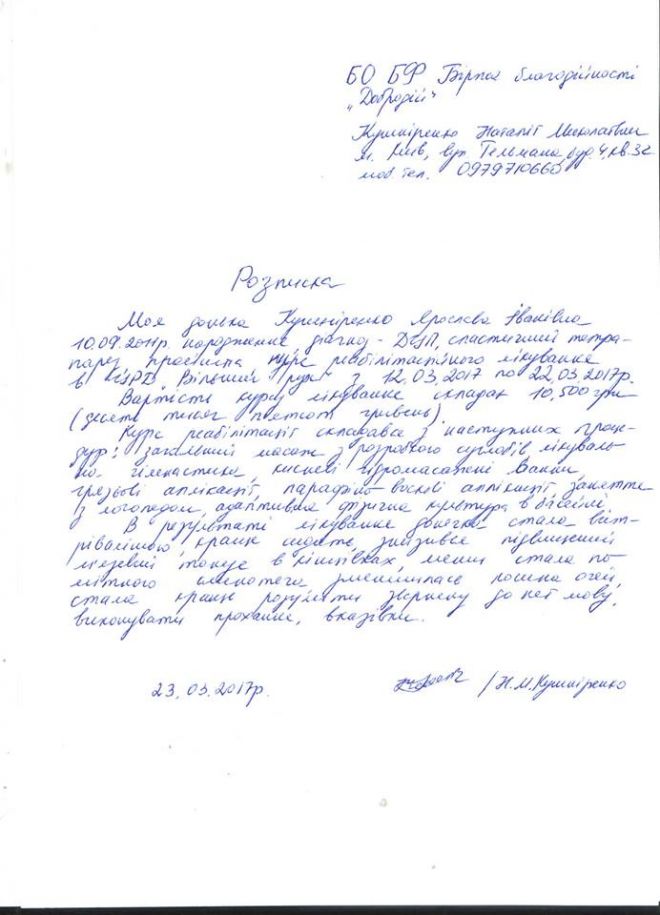 БО БФ Біржа благодійності
"Добродій"
Кушніренко Наталії Миколаївни
м. Київ, вул. Тельмана, буд. 4, кв. 32
моб. тел. 0979710665
Розписка
Моя донька Кушніренко Ярослава Іванівна
10.09.2011р. народження, діагноз - ДЦП, спастичний тетра-
парез пройшла курс реабілітаційного лікування
в "Вільний рух" з 12.03.2017 по 22.03.2017р.
Вартість курсу лікування складає 10,500 грн
(десять тисяч п'ятсот гривень).
Курс реабілітації складався з наступних проце-
дур: загальний масаж з розробкою суглобів, лікуваль-
на гімнастика, кисневі гідромасажні ванни,
грязьові аплікації, парафіно-воскові аплікації, заняття
з логопедом, адаптивна фізична культура в басейні.
В результаті лікування донечка стала вит-
рівалішою, краще сидить, знизився підвищений
м'язевий тонус в кінцівках, менш стала по-
мітною слинотеча, зменшилася косина очей,
стала краще розуміти звернену до неї мову,
виконувати прохання, вказівки.
23.03.2017р. /Н.М.Кушніренко